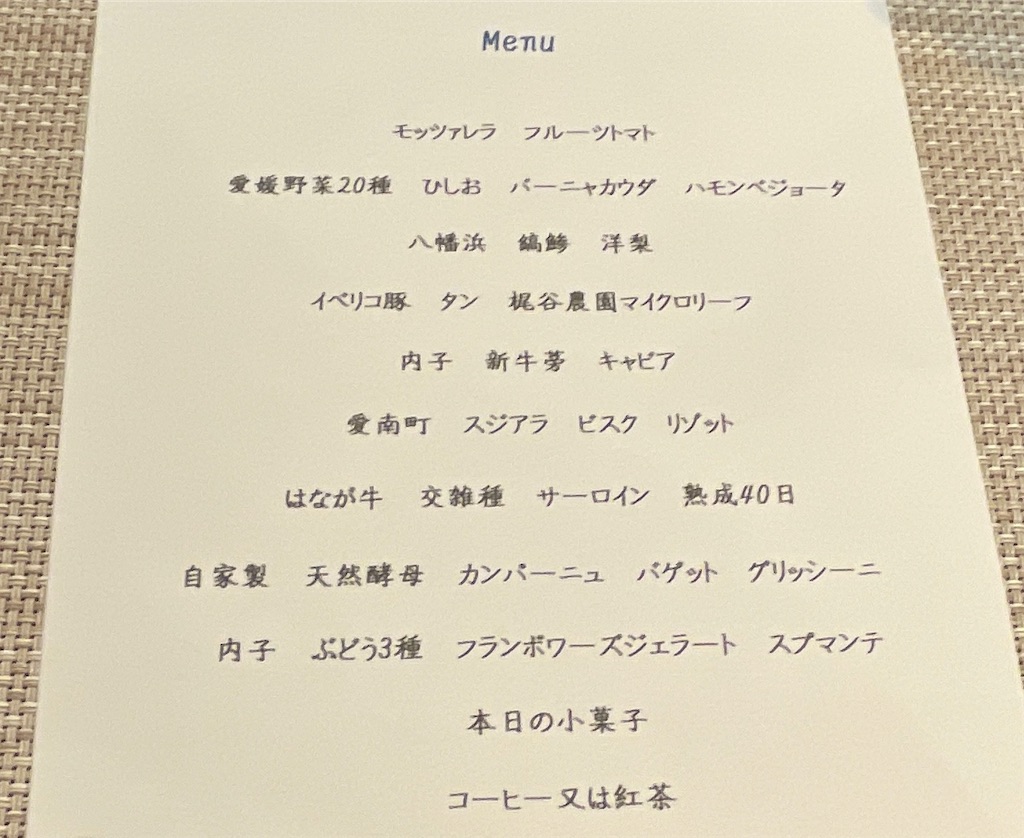 Menu
モッツァレラ フルーツトマト
愛媛野菜20種 ひしお バーニャカウダ ハモンベジョータ
八幡浜 縞鯵 洋梨
イベリコ豚 タン 梶谷農園マイクロリーフ
内子 新牛蒡 キャビア
愛南町 スジアラ ビスク リゾット
はなが牛 交雑種 サーロイン 熟成40日
自家製 天然酵母 カンパーニュ バゲット グリッシーニ
内子 ぶどう3種 フランボワーズジェラート スプマンテ
本日の小菓子
コーヒー又は紅茶